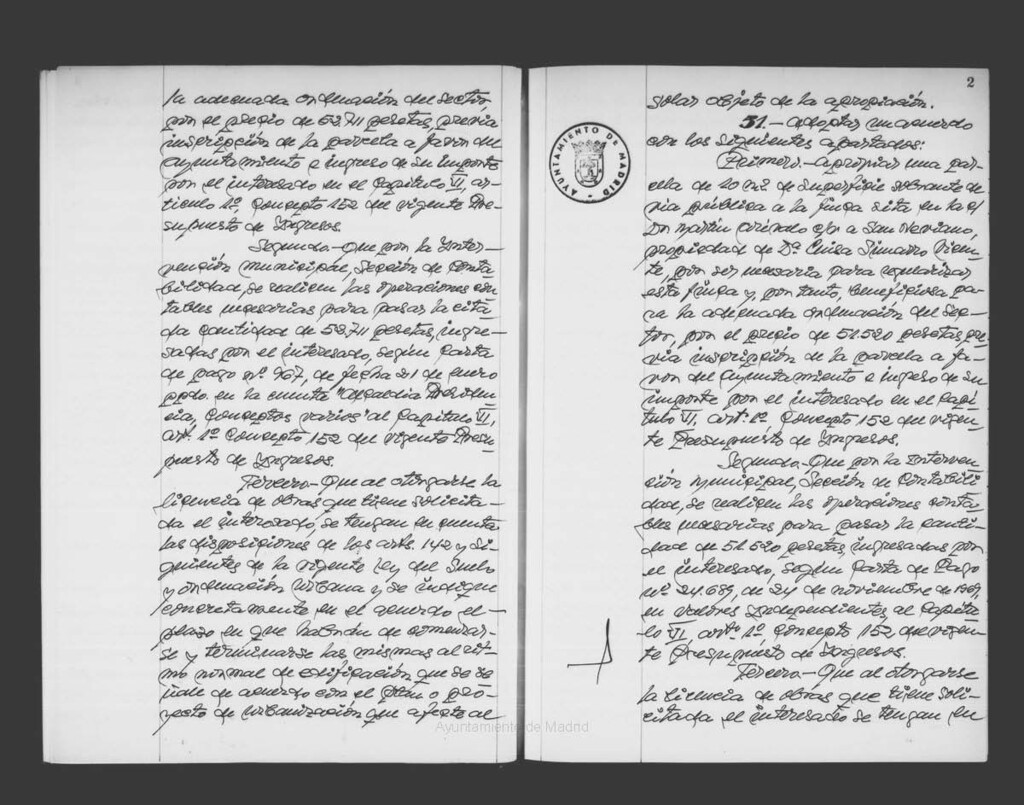 la adecuada ordenación del sector,
por el precio de 58.711 pesetas, previa
inscripción de la parcela a favor del
Ayuntamiento e ingreso de su importe
por el interesado en el Capítulo VI, ar-
tículo 1º, Concepto 152 del vigente Pre-
supuesto de Ingresos.
Segundo.- Que por la Inter-
vención Municipal, Sección de Conta-
bilidad, se realicen las operaciones con-
tables necesarias para pasar la cita-
da cantidad de 58.711 pesetas, ingre-
sadas por el interesado, según Carta
de pago nº 967, de fecha 21 de enero
ppdo. en la cuenta "Alcaldía Presiden-
cia, Conceptos varios" al Capítulo VI,
art. 1º Concepto 152 del vigente Presu-
puesto de Ingresos.
Tercero.- Que al otorgarse la
licencia de obras que tiene solicita-
da el interesado, se tengan en cuenta
las disposiciones de los arts. 142 y si-
guientes de la vigente Ley del Suelo
y Ordenación Urbana y se indique
concretamente en el acuerdo el
plazo en que habrán de comenzar-
se y terminarse las mismas al rit-
mo normal de edificación que se se-
ñale de acuerdo con el plan o pro-
yecto de urbanización que afecte al
2
solar objeto de la apropiación.
51.- Adoptar un acuerdo
con los siguientes apartados:
Primero.- Apropiar una par-
cela de 20 m2 de superficie sobrante de
vía pública a la finca sita en la c/
Don Martín c/v a San Nerviano,
propiedad de Dª Luisa Simarro Vicen-
te, por ser necesaria para regularizar
esta finca y, por tanto, beneficiosa pa-
ra la adecuada ordenación del Sec-
tor, por el precio de 51.520 pesetas, pre-
via inscripción de la parcela a fa-
vor del Ayuntamiento e ingreso de su
importe por el interesado en el Capí-
tulo VI, artº. 1º Concepto 152 del vigen-
te Presupuesto de Ingresos.
Segundo.- Que por la Interven-
ción Municipal, Sección de Contabili-
dad, se realicen las operaciones conta-
bles necesarias para pasar la canti-
dad de 51.520 pesetas, ingresadas por
el interesado, según Carta de Pago
nº 24.689, de 24 de noviembre de 1969,
en Valores Independientes, al Capítu-
lo VI, artº. 1º, Concepto 152, del vigen-
te Presupuesto de Ingresos.
Tercero.- Que al otorgarse
la licencia de obras que tiene soli-
citada el interesado se tengan en
AYUNTAMIENTO DE MADRID
Ayuntamiento de Madrid